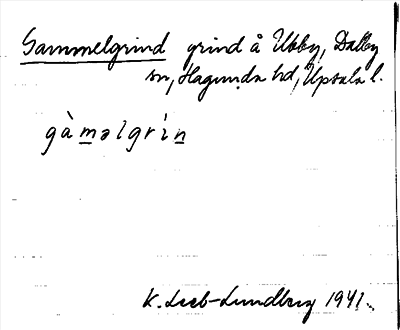 Gammelgrind grind å Ubby, Dalby
sn, Hagunda hd, Upsala l.
gàm̲əlgrìn̲
K. Leeb-Lundberg 1941.